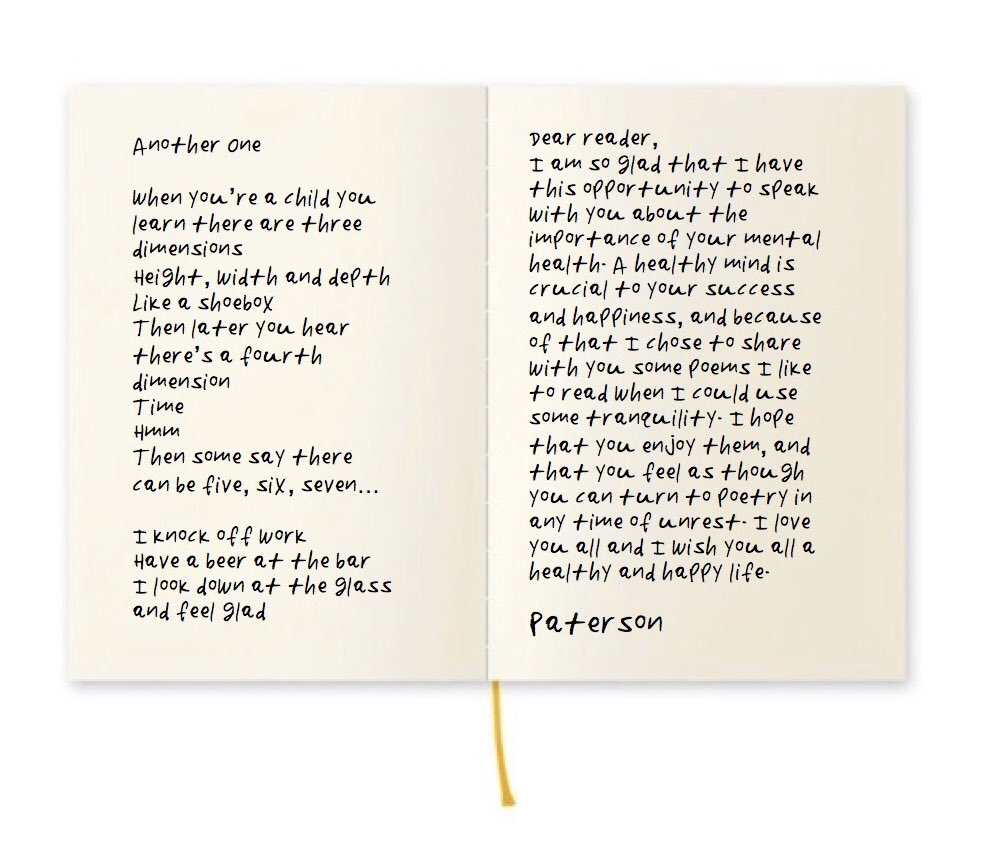 Another One
When you're a child you
learn there are three
dimensions
Height, width and depth
Like a shoebox
Then later you hear
there's a fourth
dimension
Time
Hmm
Then some say there
can be five, six, seven...
I knock off work
Have a beer at the bar
I look down at the glass
and feel glad
Dear reader,
I am so glad that I have
this opportunity to speak
with you about the
importance of your mental
health. A healthy mind is
crucial to your success
and happiness, and because
of that I chose to share
with you some poems I like
to read when I could use
some tranquility. I hope
that you enjoy them, and
that you feel as though
you can turn to poetry in
any time of unrest. I love
you all and I wish you all a
healthy and happy life.
Paterson